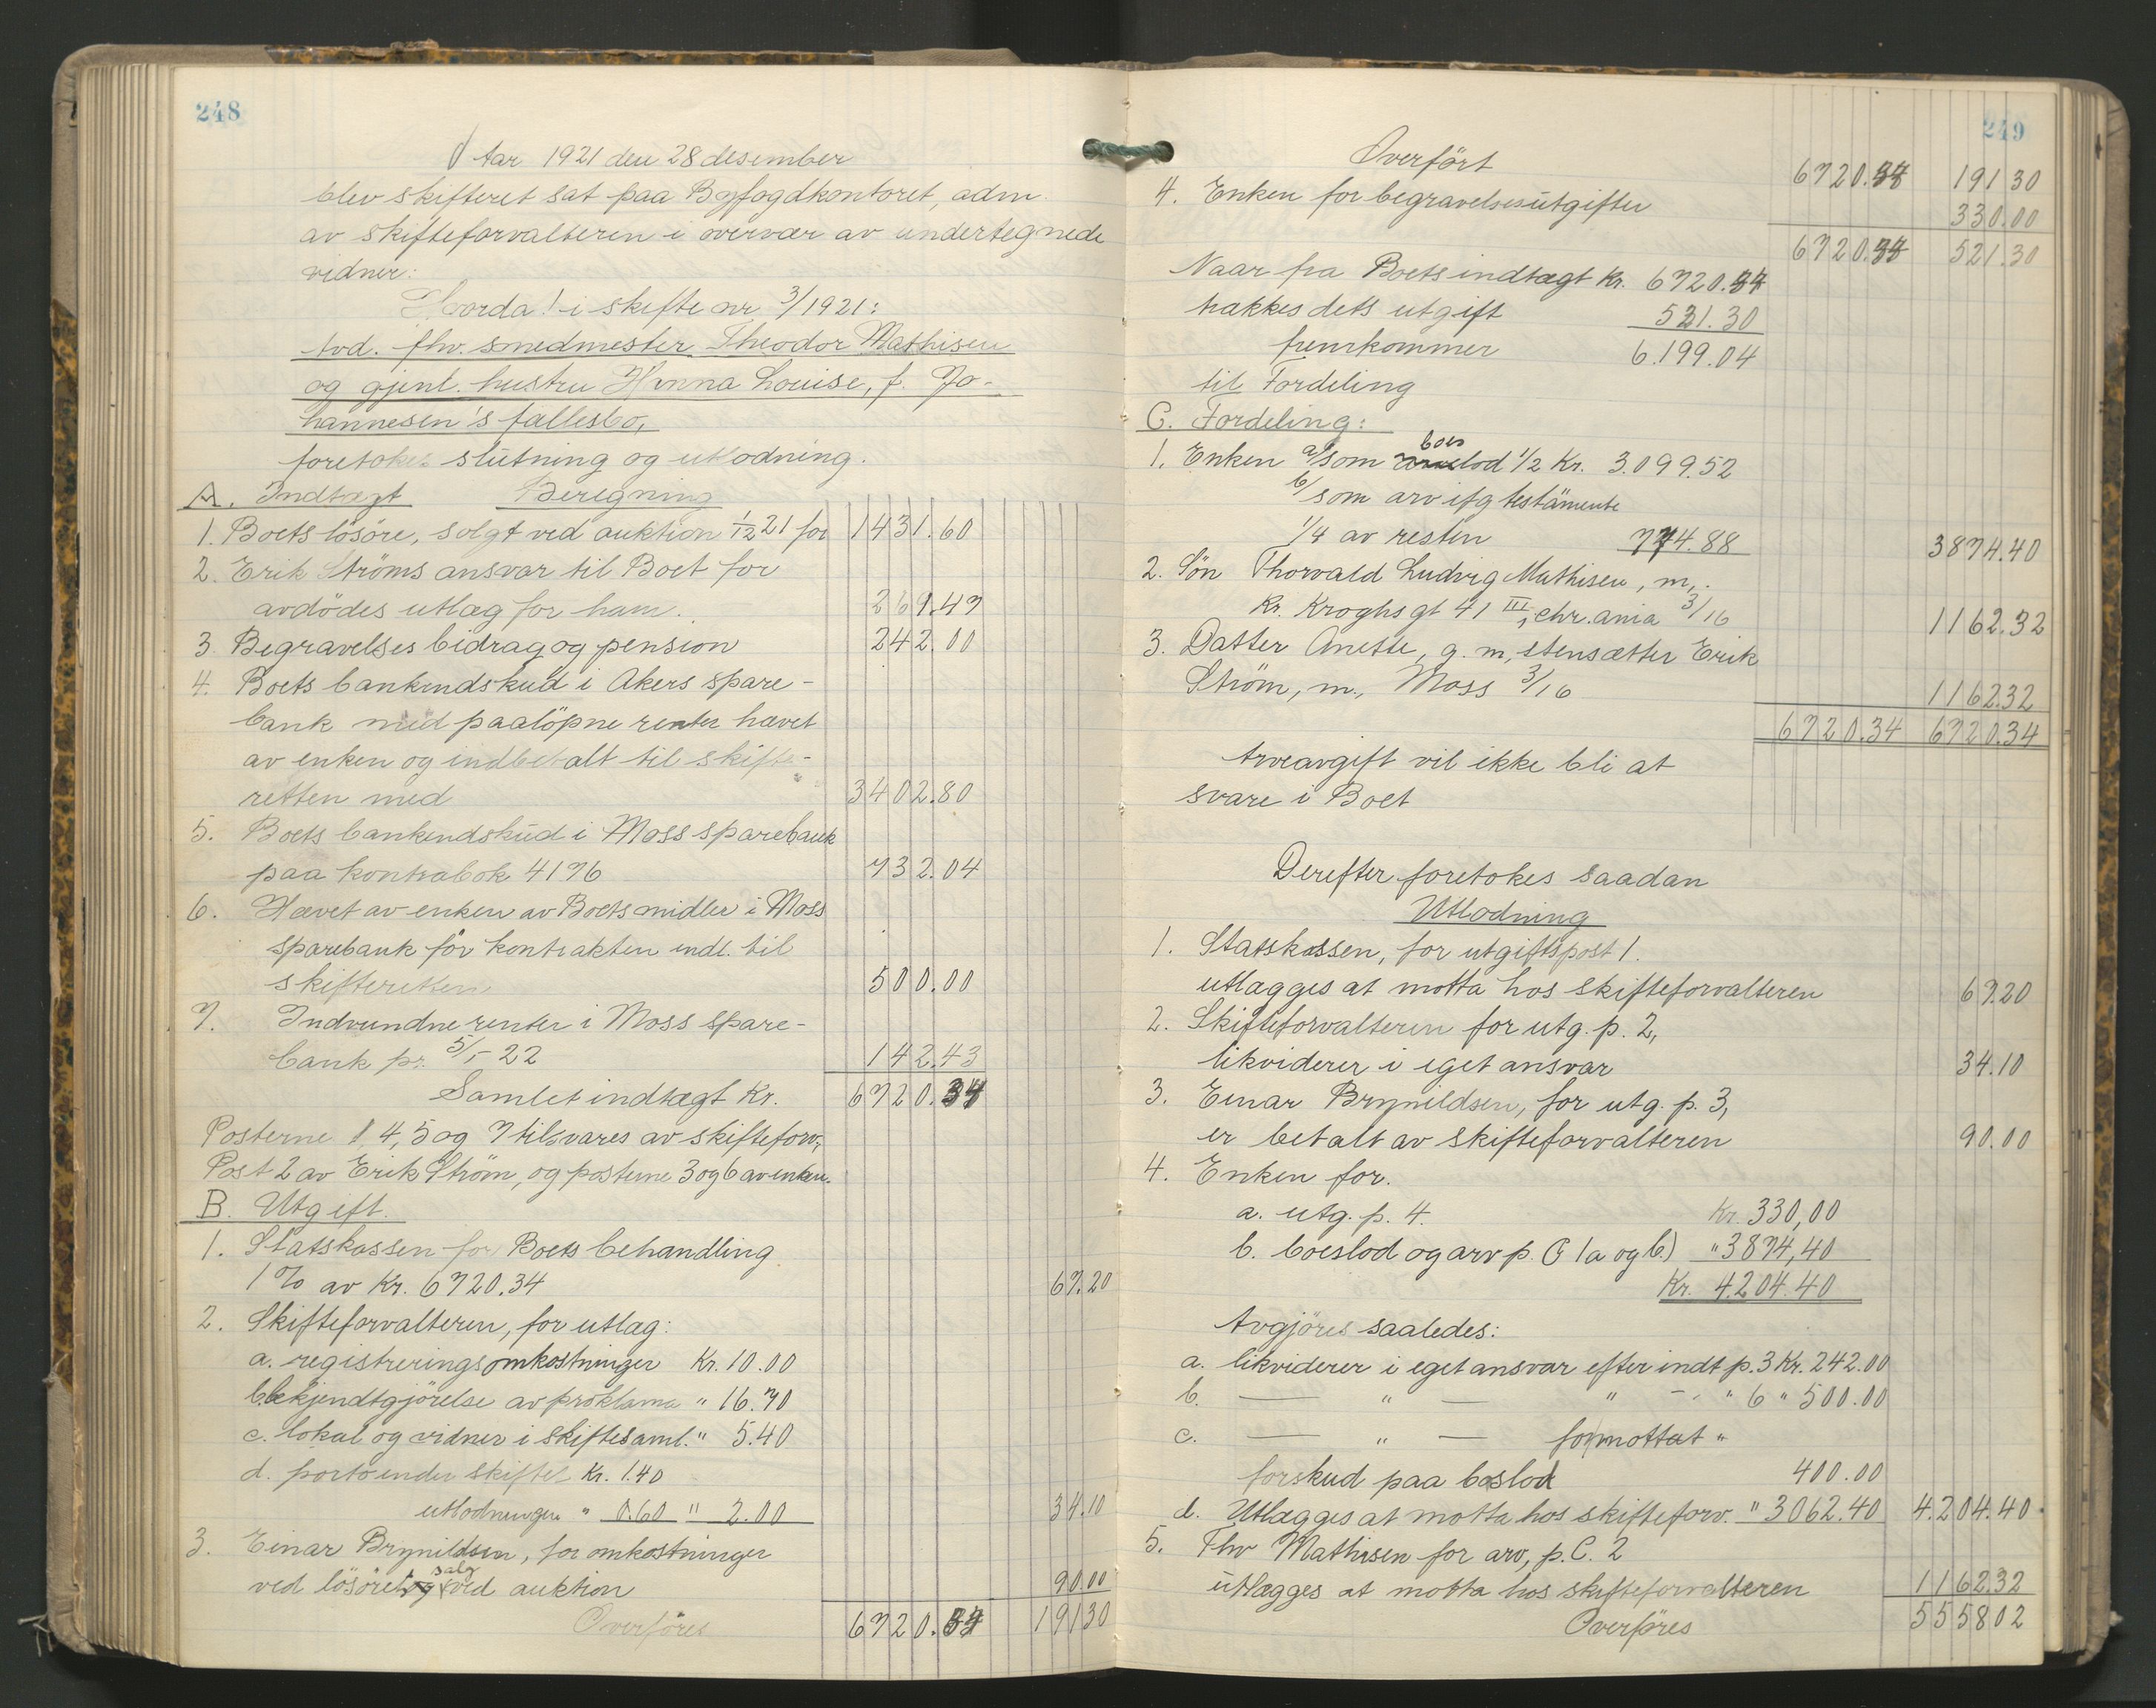 248
Aar 1921 den 28 desember
blev skifteret sat paa Byfogdkontoret, adm.
av skifteforvalteren i overvær av undertegnede
vidner:
Hvorda! i skifte nr 3/1921:
avd. fhv. smedmester Theodor Mathisen
og gjenl. hustru Hanna Louise, f. Jo-
hannesen's fællesbo,
foretokes slutning og utlodning.
A. Indtægt Beregning
1. Boets lösöre, solgt ved auktion 1/12 21 for 1431.60
2. Erik Ströms ansvar til Boet for
avdödes utlæg for ham. 269.47
3. Begravelses bidrag og pension 242.00
4. Boets bankindskud i Akers spare-
bank med paalöpne renter hævet
av enken og indbetalt til skifte-
retten med 3402.80
5. Boets bankindskud i Moss sparebank
paa kontrabok 4176 732.04
6. Hævet av enken av Boets midler i Moss
sparebank för kontrakten indl. til
skifteretten 500.00
7. Indvundne renter i Moss spare-
bank pr. 5/1-22 142.43
Samlet indtægt Kr. 6720.34
Posterne 1, 4, 5 og 7 tilsvares av skifteforv.,
Post 2 av Erik Ström, og posterne 3 og 6 av enken.
B. Utgift.
1. Statskassen for Boets behandling
1% av Kr. 6720.34 67.20
2. Skifteforvalteren, for utlæg:
a. registreringsomkostninger Kr. 10.00
b. bekjendtgjörelse av proklama " 16.70
c. lokal og vidner i skiftesaml. " 5.40
d. porto under skiftet Kr. 1.40
utlodningen " 0.60 " 2.00 34.10
3. Einar Brynildsen, for omkostninger
ved lösörets salg ved auktion 90.00
Overföres 6720.34 191.30
249
Overfört 6720.34 191.30
4. Enken for begravelsesutgifter 330.00
6720.34 521.30
Naar fra Boets indtægt Kr. 6720.34
trækkes dets utgift 521.30
fremkommer 6.199.04
til Fordeling
C. Fordeling:
1. Enken a/ som boeslod 1/2 Kr. 3.099.52
b/ som arv ifg testamente
1/4 av resten 774.88 3874.40
2. Sön Thorvald Ludvig Mathisen, m.,
Kr. Kroghs gt 41 III, Chr.ania 3/16 1162.32
3. Datter Anette, g. m. stensætter Erik
Ström, m., Moss 3/16 1162.32
6720.34 6720.34
Arveavgift vil ikke bli at
svare i Boet
Derefter foretokes saadan
Utlodning
1. Statskassen, for utgiftspost 1.
utlægges at motta hos skifteforvalteren 67.20
2. Skifteforvalteren for utg. p. 2,
likviderer i eget ansvar 34.10
3. Einar Brynildsen, for utg. p. 3,
er betalt av skifteforvalteren 90.00
4. Enken for.
a. utg. p. 4. Kr. 330,00
b. boeslod og arv p. C 1a og b.) " 3874,40
Kr. 4.204.40
Avgjöres saaledes:
a. likviderer i eget ansvar efter indt p. 3 Kr. 242.00
b. — " — " - " 6 " 500.00
c. — " — for mottat "
forskud paa boslod 400.00
d. Utlægges at motta hos skifteforv. " 3062.40 4.204.40
5. Thv Mathisen for arv, p. C. 2
utlægges at motta hos skifteforvalteren 1162.32
Overföres 5558.02